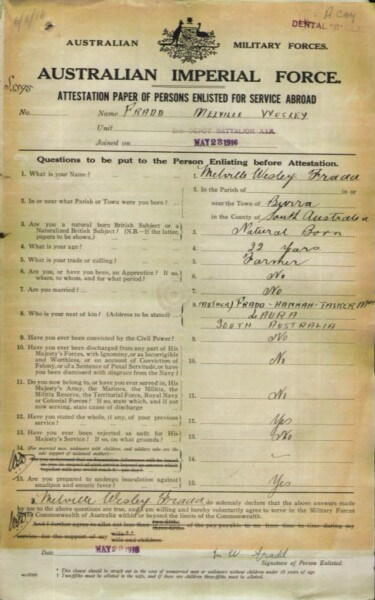 A Coy
DENTAL
AUSTRALIAN MILITARY FORCES.
AUSTRALIAN IMPERIAL FORCE.
ATTESTATION PAPER OF PERSONS ENLISTED FOR SERVICE ABROAD
No. Name FRADD MELVILLE WESLEY
Unit 2ND DEPOT BATTALION A.I.F.
Joined on MAY 23 1916
Questions to be put to the Person Enlisting before Attestation.
1. What is your Name? 1. Melville Wesley Fradd
2. In or near what Parish or Town were you born? 2. In the Parish of in or
near the Town of
in the County of South Australia
3. Are you a natural born British Subject or a
Naturalized British Subject? (N.B.—If the latter,
papers to be shown.) 3. Natural Born
4. What is your age? 4. 22 Years
5. What is your trade or calling? 5. Farmer
6. Are you, or have you been, an Apprentice? If so,
where, to whom, and for what period? 6. No
7. Are you married? 7. No
8. Who is your next of kin? (Address to be stated) 8. FRADD - HANNAH - TASKER Mrs
LAURA
SOUTH AUSTRALIA
9. Have you ever been convicted by the Civil Power? 9. No
10. Have you ever been discharged from any part of His
Majesty's Forces, with Ignominy, or as Incorrigible
and Worthless, or on account of Conviction of
Felony, or of a Sentence of Penal Servitude, or have
you been dismissed with disgrace from the Navy? 10. No
11. Do you now belong to, or have you ever served in, His
Majesty's Army, the Marines, the Militia, the
Militia Reserve, the Territorial Force, Royal Navy
or Colonial Forces? If so, state which, and if not
now serving, state cause of discharge 11. No
12. Have you stated the whole, if any, of your previous
service? 12. Yes
13. Have you ever been rejected as unfit for His
Majesty's Service? If so, on what grounds? 13. No
14. (For married men, widowers with children, and soldiers who are the
sole support of widowed mother)— 14.
15. Are you prepared to undergo inoculation against
smallpox and enteric fever? 15. Yes
I, Melville Wesley Fradd do solemnly declare that the above answers made
by me to the above questions are true, and I am willing and hereby voluntarily agree to serve in the Military Forces
of the Commonwealth of Australia within or beyond the limits of the Commonwealth.
And I further agree to allot not less than of the pay payable to me from time to time during my
service for the support of my
Date MAY 23 1916 M W Fradd
Signature of Person Enlisted.